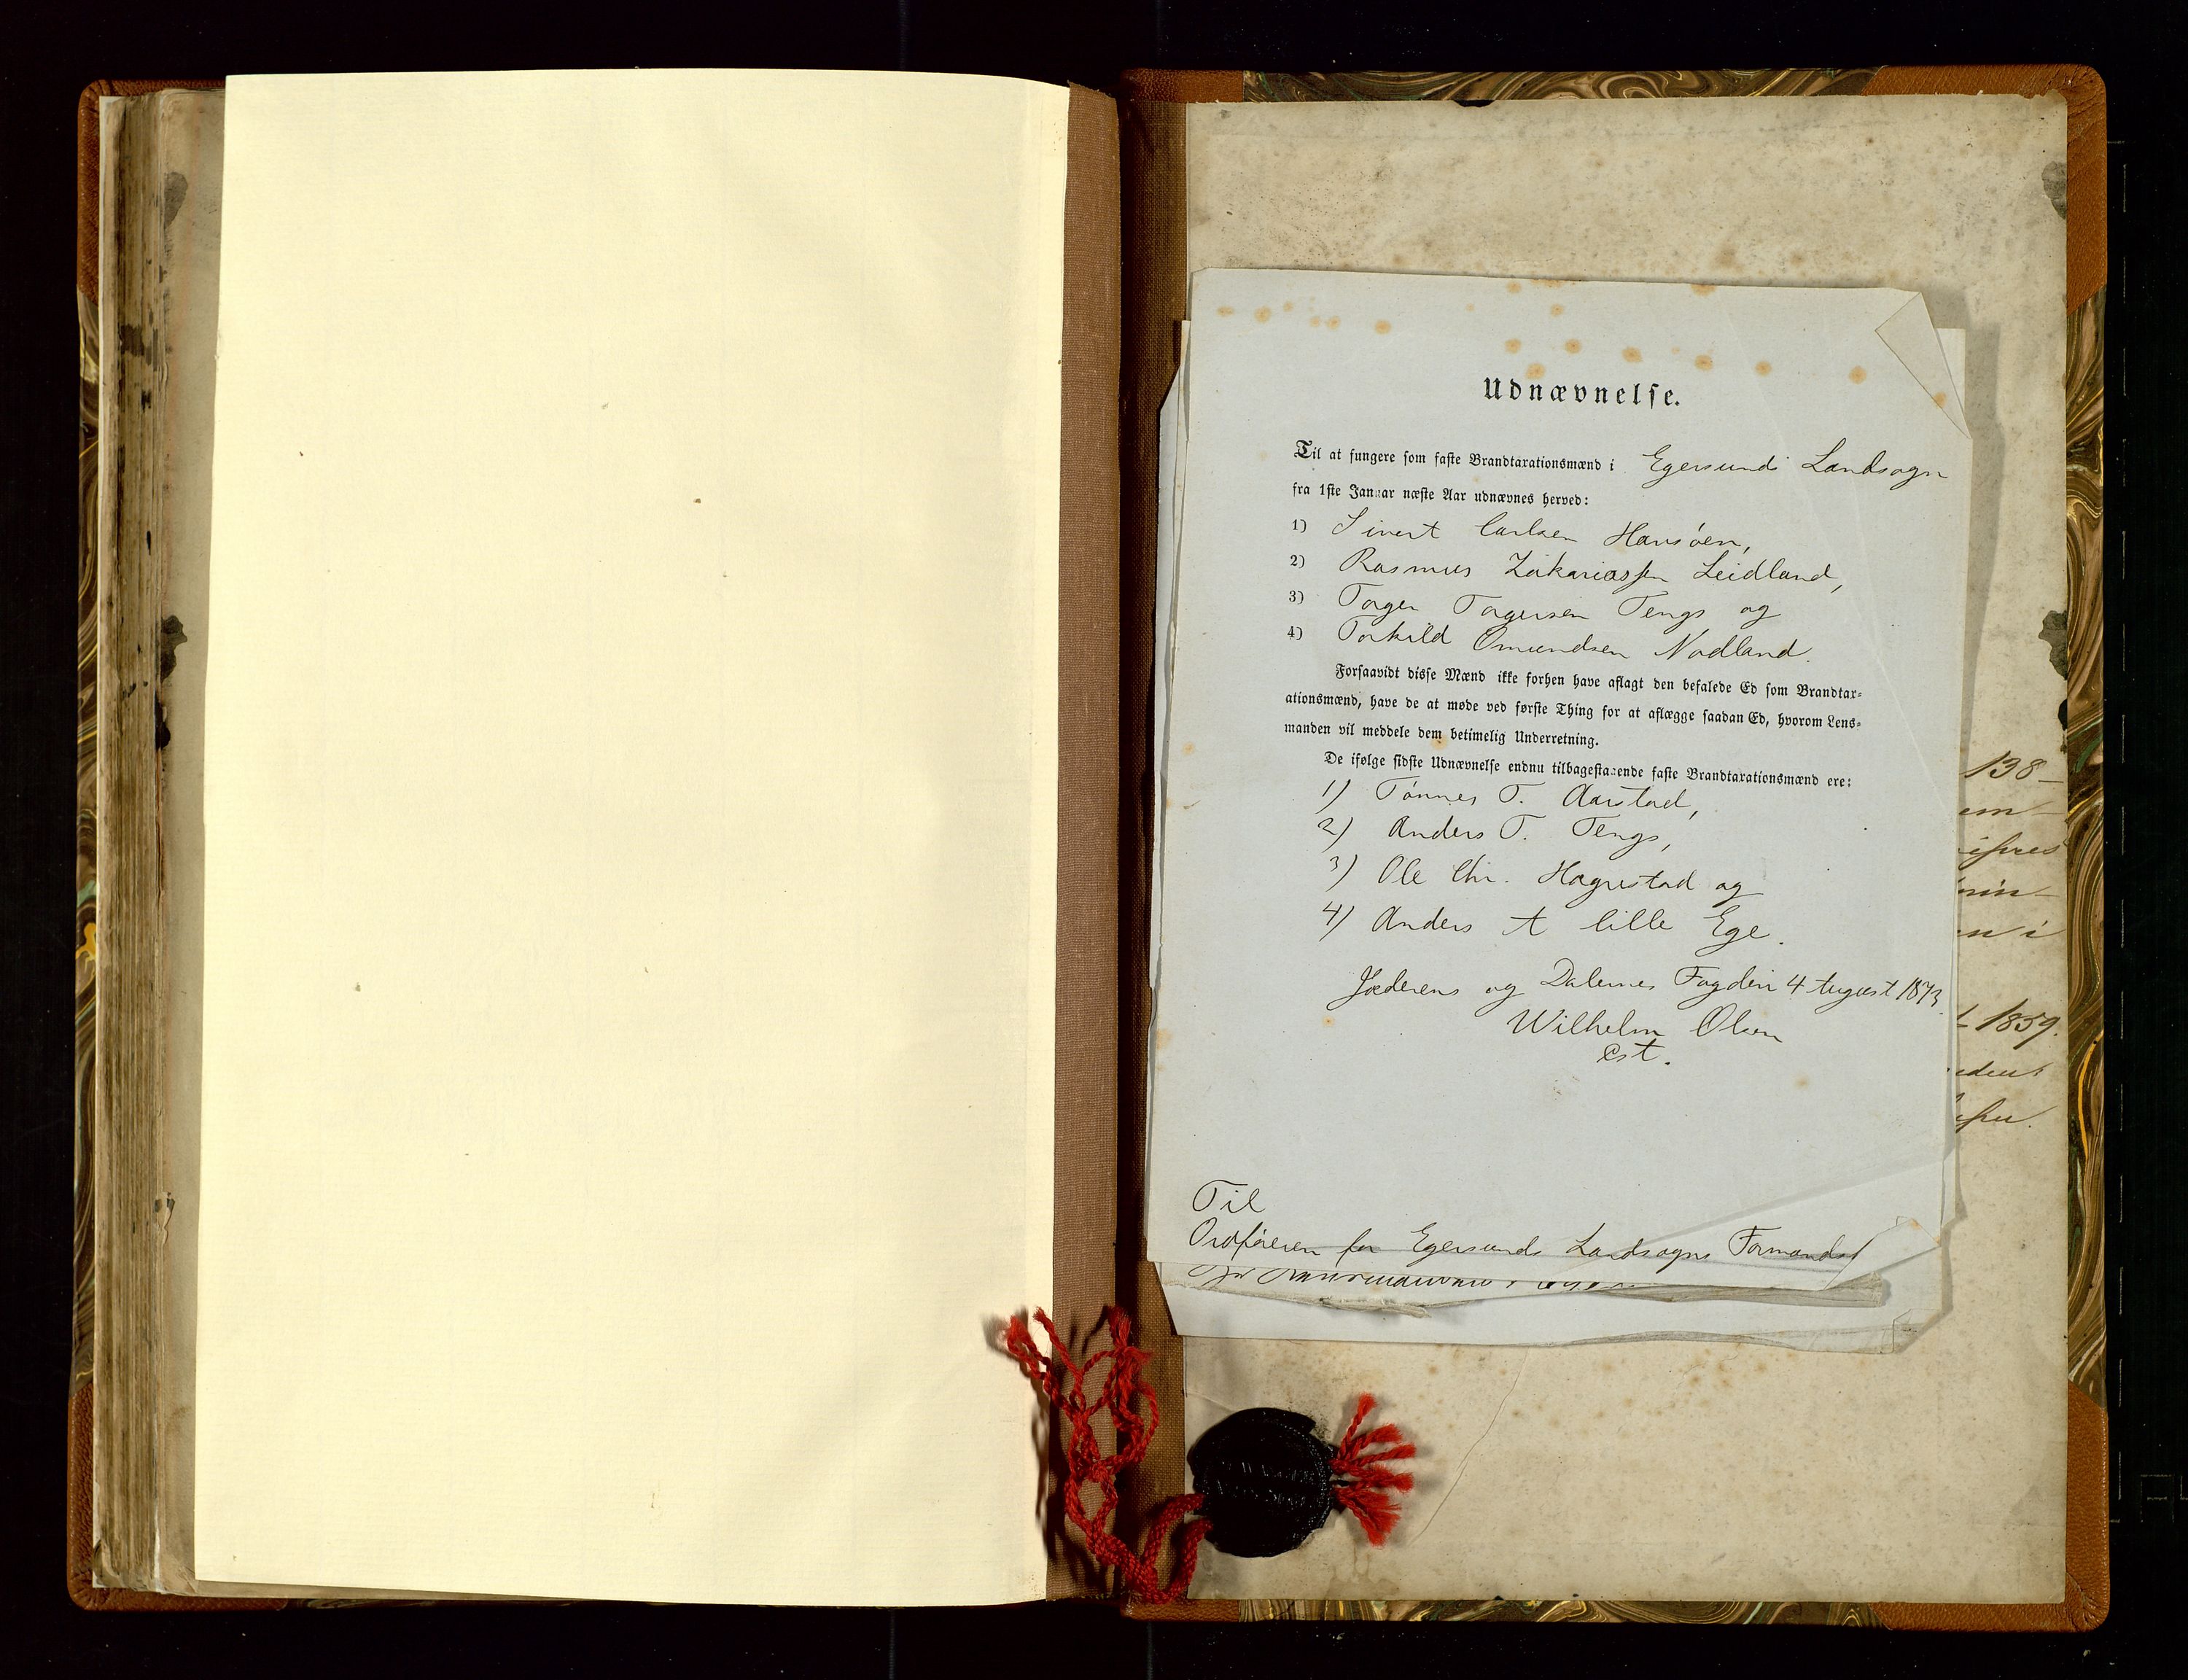 Udnævnelse.
Til at fungere som faste Brandtaxationsmænd i Egersunds Landsogn
fra 1ste Januar næste Aar udnævnes herved:
1) Sivert Carlsen Hansøen,
2) Rasmus Zakariassen Leidland,
3) Torger Torgersen Tengs og
4) Torkild Omundsen Nodland.
Forsaavidt disse Mænd ikke forhen have aflagt den befalede Ed som Brandtax-
ationsmænd, have de at møde ved første Thing for at aflægge saadan Ed, hvorom Lens-
manden vil meddele dem betimelig Underretning.
De ifølge sidste Udnævnelse endnu tilbagestaaende faste Brandtaxationsmænd ere:
1) Tønnes T. Aarstad,
2) Anders T. Tengs,
3) Ole Chr. Hagrestad og
4) Anders A lille Ege.
Jæderens og Dalernes Fogderi 4 August 1873
Wilhelm Olsen
cst.
Til
Ordføreren for Egersunds Landsogns Formandsk
138-
em-
min-
en i
1859.